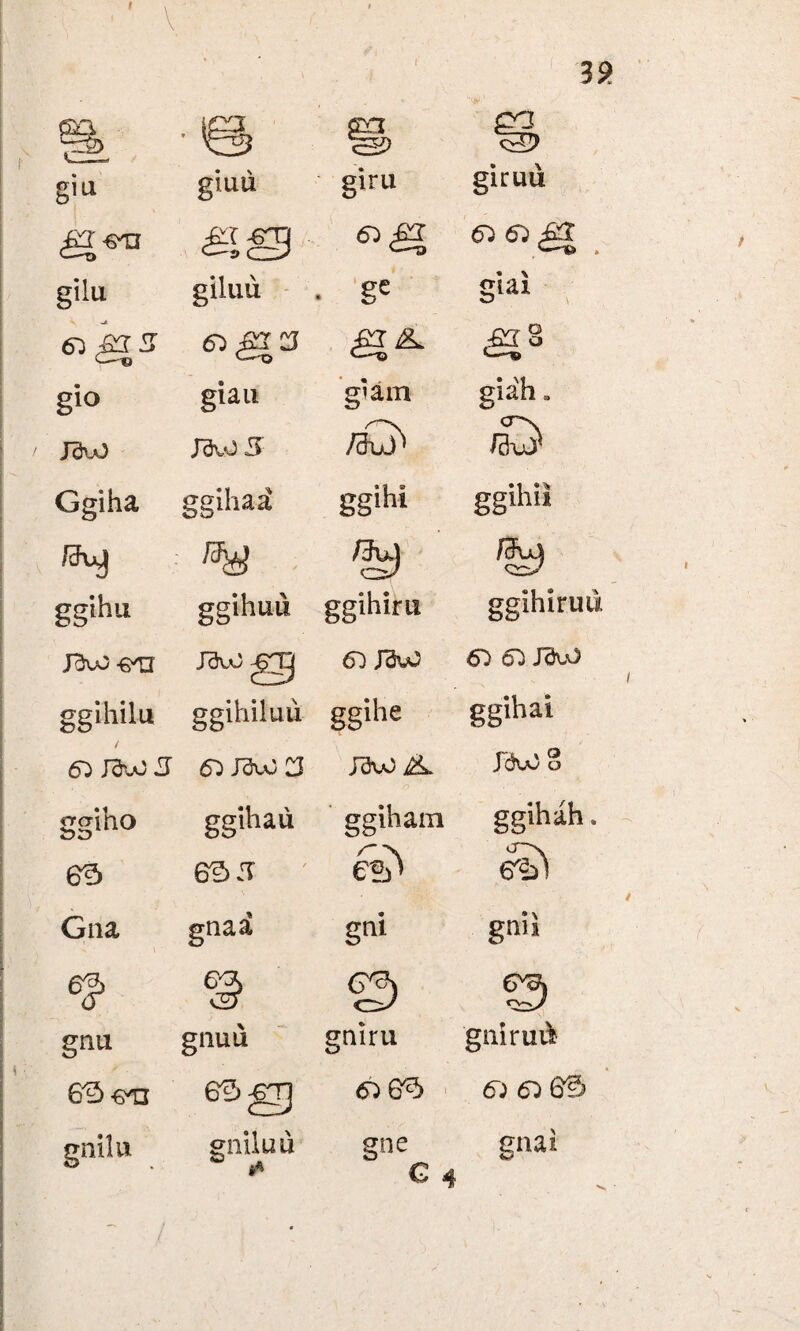 39
ജു ജൂ ജൃ ജൄ
giu giuù giru giruù
ജഌ ജൡ ജെ ജൈ
gilu giluù ge giai
ജൊ ജൌ ജം ജഃ
gio giau giam giàh.
ഝ ഝാ ഝി ഝീ
Ggiha ggihaà ggihi ggihiì
ഝു ഝൂ ഝൃ ഝൄ
ggihu ggihuù ggihiru ggihiruù
ഝഌ ഝൡ ഝെ ഝൈ
ggihilu ggihiluù ggihe ggihai
ഝൊ ഝൌ ഝം ഝഃ
ggiho ggihaù ggiham ggihàh.
ഞ ഞാ ഞി ഞീ
Gna gnaà gni gniì
ഞു ഞൂ ഞൃ ഞൄ
gnu gnuù gniru gniruù
ഞഌ ഞൡ ഞെ ഞൈ
gnilu gniluù gne gnai
G 4